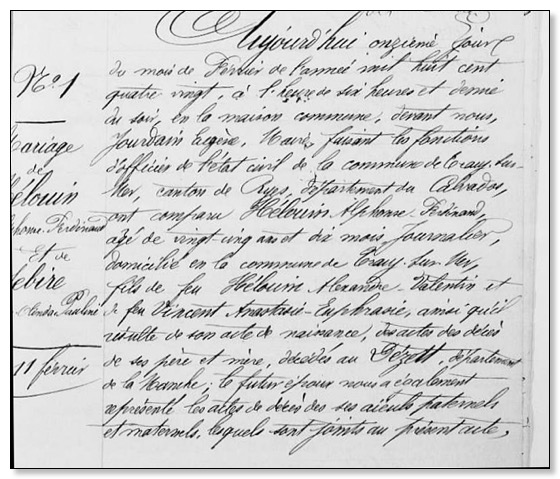 Aujourd'hui onzième Jour
Nº 1
du mois de Février de l'année mil huit cent
quatre vingt, à l'heure de six heures et demie
du soir, en la maison commune, devant nous,
Mariage
Jourdain Eugène, Maire, faisant les fonctions
de
d'officier de l'état civil de la commune de Tracy-sur-
Hélouin
Mer, canton de Ryes, département du Calvados,
Alphonse-Ferdinand
ont comparu Hélouin Alphonse-Ferdinand,
Et de
âgé de vingt-cinq ans et dix mois, Journalier,
domicilié en la commune de Tracy-sur-Mer,
Lebire
fils de feu Hélouin Alexandre-Valentin et
Pauline
de feu Vincent Anastasie-Euphrasie, ainsi qu'il
résulte de son acte de naissance, des actes de décès
11 février
de ses père et mère, décédés au Dézert, département
de la Manche; le futur époux nous a également
représenté les actes de décès des ses aïeuls paternels
et maternels, lesquels sont joints au présent acte,